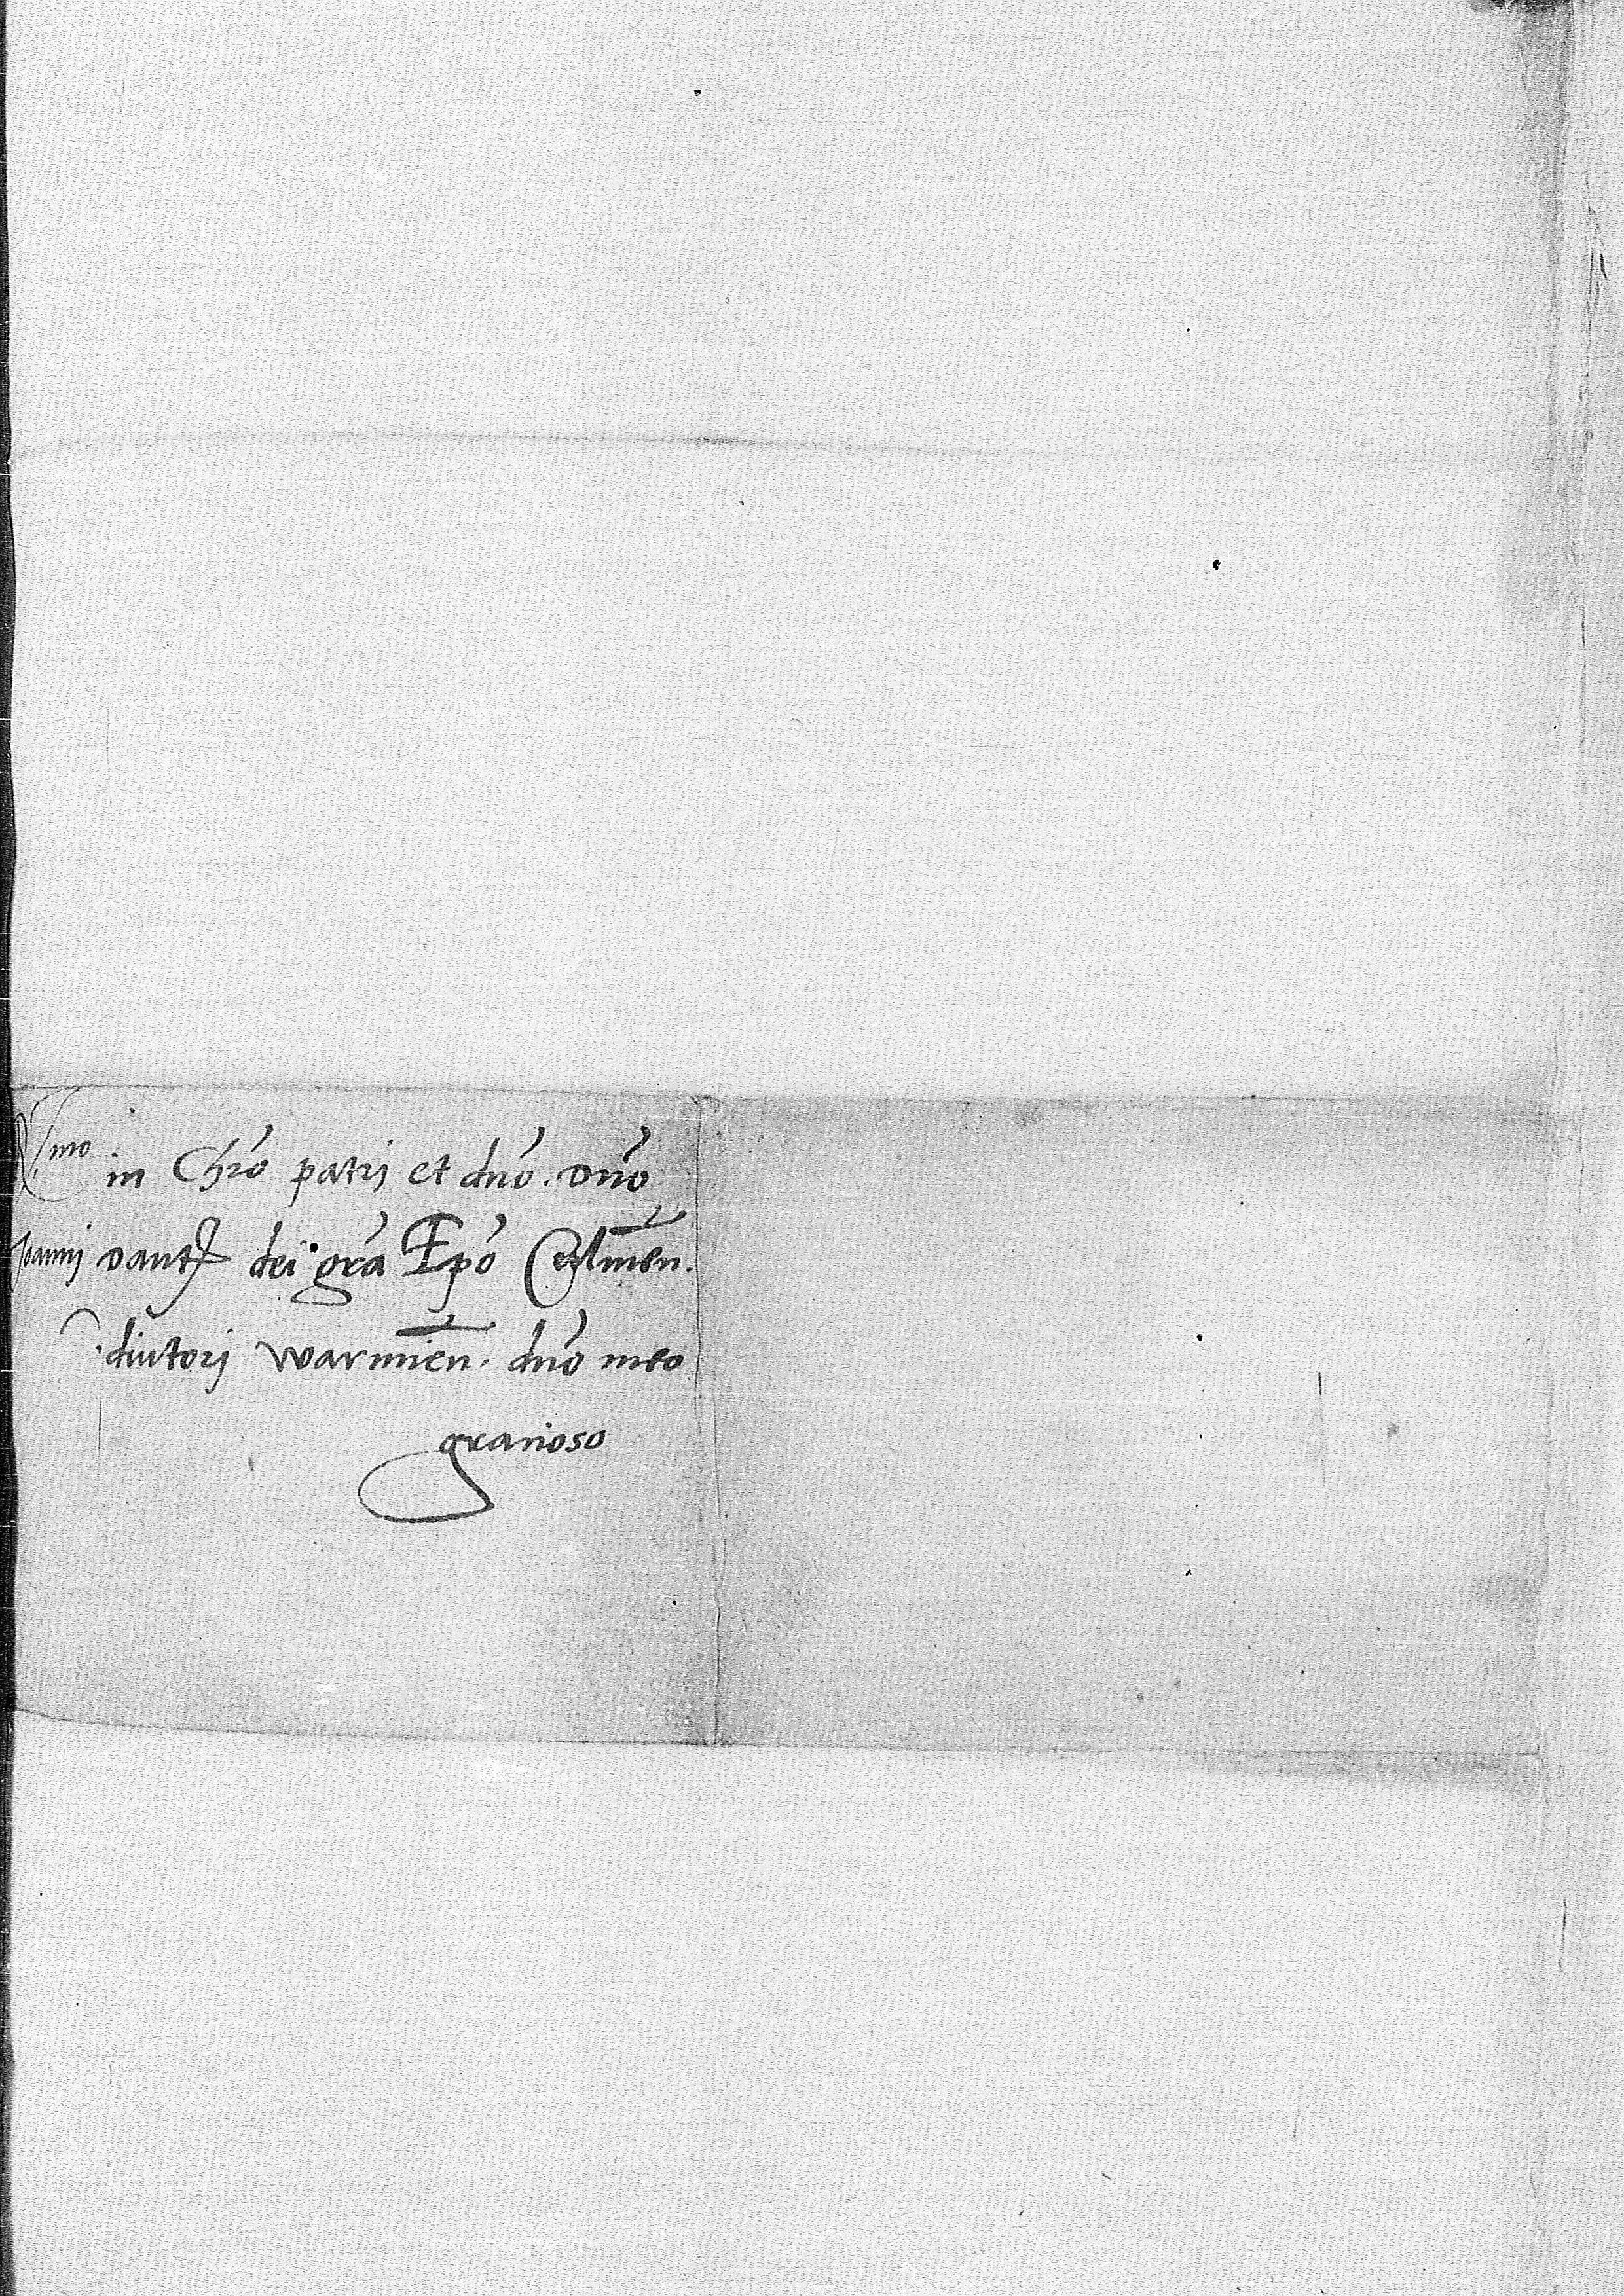 R^mo in Chr̄o patri et dn̄o. Dn̄o
Joanni Dant⁊ dei gr̄a Ep̄o Culmen̄.
diutori Warmien̄. dn̄o meo
gratioso